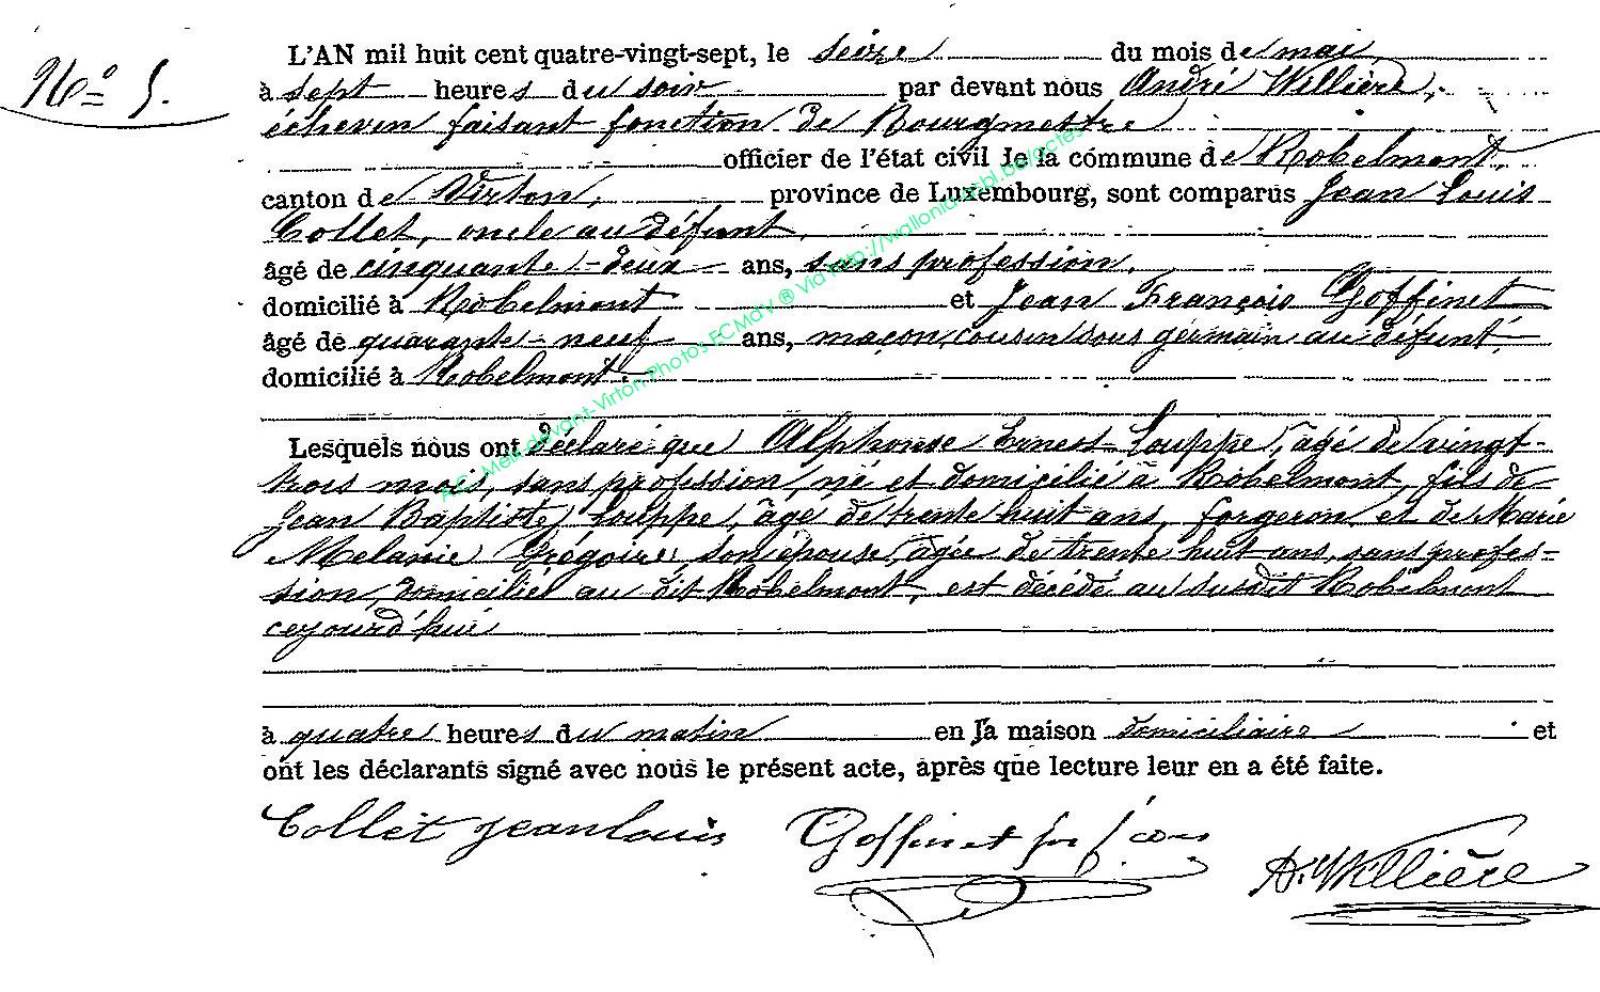 No 5.
L'AN mil huit cent quatre-vingt-sept, le seize du mois de mai
à sept heures du soir par devant nous André Willière,
échevin faisant fonction de Bourgmestre
officier de l'état civil de la commune de Robelmont,
canton de Virton, province de Luxembourg, sont comparus Jean Louis
Collet, oncle au défunt,
âgé de cinquante-deux ans, sans profession,
domicilié à Robelmont et Jean François Goffinet
âgé de quarante-neuf ans, maçon, cousin sous germain au défunt,
domicilié à Robelmont.
Lesquels nous ont déclaré que Alphonse Ernest Louppe, âgé de vingt-
trois mois, sans profession, né et domicilié à Robelmont, fils de
Jean Baptiste Louppe, âgé de trente huit ans, forgeron, et de Marie
Melanie Grégoire, son épouse, agée de trente huit ans, sans profes-
sion, domiciliés au dit Robelmont, est décédé au susdit Robelmont
cejourd'hui
à quatre heures du matin en la maison domiciliaire et
ont les déclarants signé avec nous le présent acte, après que lecture leur en a été faite.
Collet jean louis Goffinet A. Willière
Meix-devant-Virton Photos ECMdV ® Via http://wallonia.asbl.be/actes